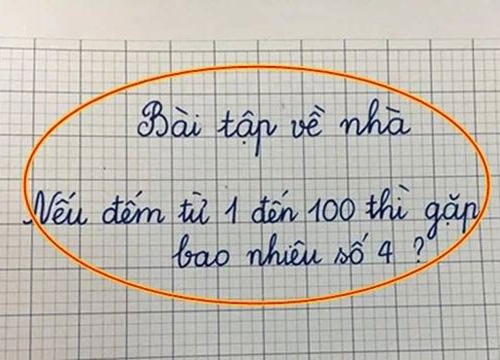 Bài tập về nhà
Nếu đếm từ 1 đến 100 thì gặp
bao nhiêu số 4 ?